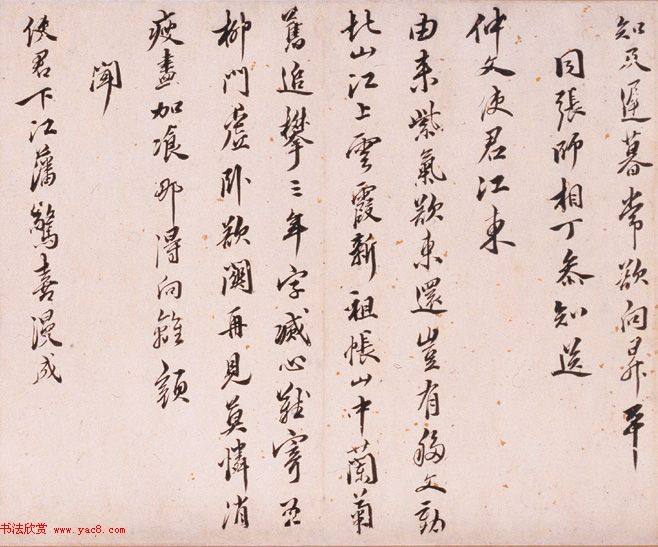 知只遲暮常欲向昇平
同張師相丁参知送
仲文使君江東
由来紫氣欲東還豈有移文勒
北山江上雲霞新祖帳山中蘭菊
舊追攀三年字滅心難寄五
柳門虛卧欲関再見莫憐消
瘦盡加飡那得向離顔
聞
使君下江藩驚喜漫成
书法欣赏 www.yac8.com